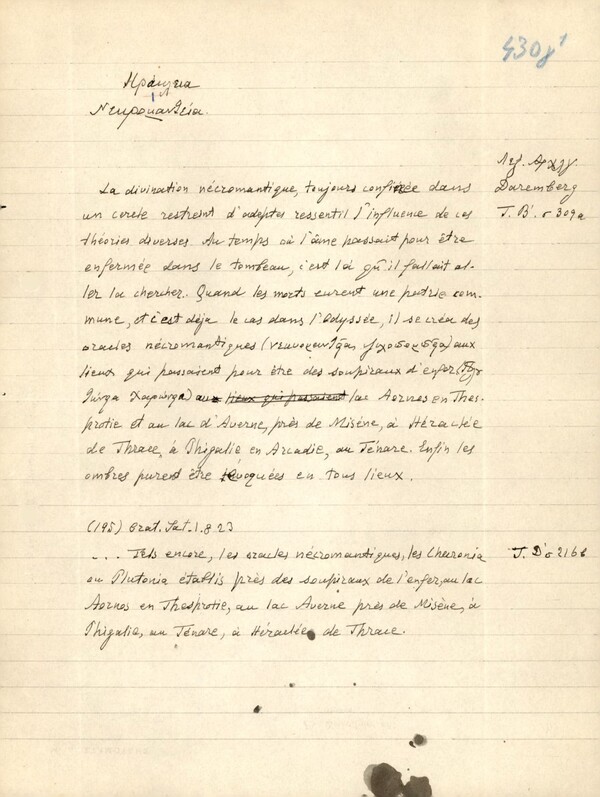 430γ¹
Ηράκλεια
Νεκρομαντεία.
Λεξ. Αρχ.
La divination nécromantique, toujours confinée dans
Daremberg
un cercle restreint d'adeptes ressentil l'influence de ces
Τ. Β'. σ 309a
théories diverses. Au temps où l'âme passait pour être
enfermée dans le tombeau, c'est là qu'il fallait al-
ler la chercher. Quand les morts eurent une patrie com-
mune, et c'est déja le cas dans l'Odyssée, il se créa des
oracles nécromantiques aux
lieux qui passaient pour être des soupiraux d'enfer
au lieux qui passaient lac Aornos en Thes-
protie et au lac d'Averne, près de Misène, à Héraclée
de Thrace, à Phigalie en Arcadie, au Ténare. Enfin les
ombres purent être évoquées en tous lieux.
(195) Orat. Sat. 1.8 23
... Tels encore, les oracles nécromantiques, les Charonia
Τ. Δ' σ 216 b
ou Plutonia établis près des soupiraux de l'enfer, au lac
Aornos en Thesprotie, au lac Averne près de Misène, à
Phigalie, au Ténare, à Héraclée de Thrace.